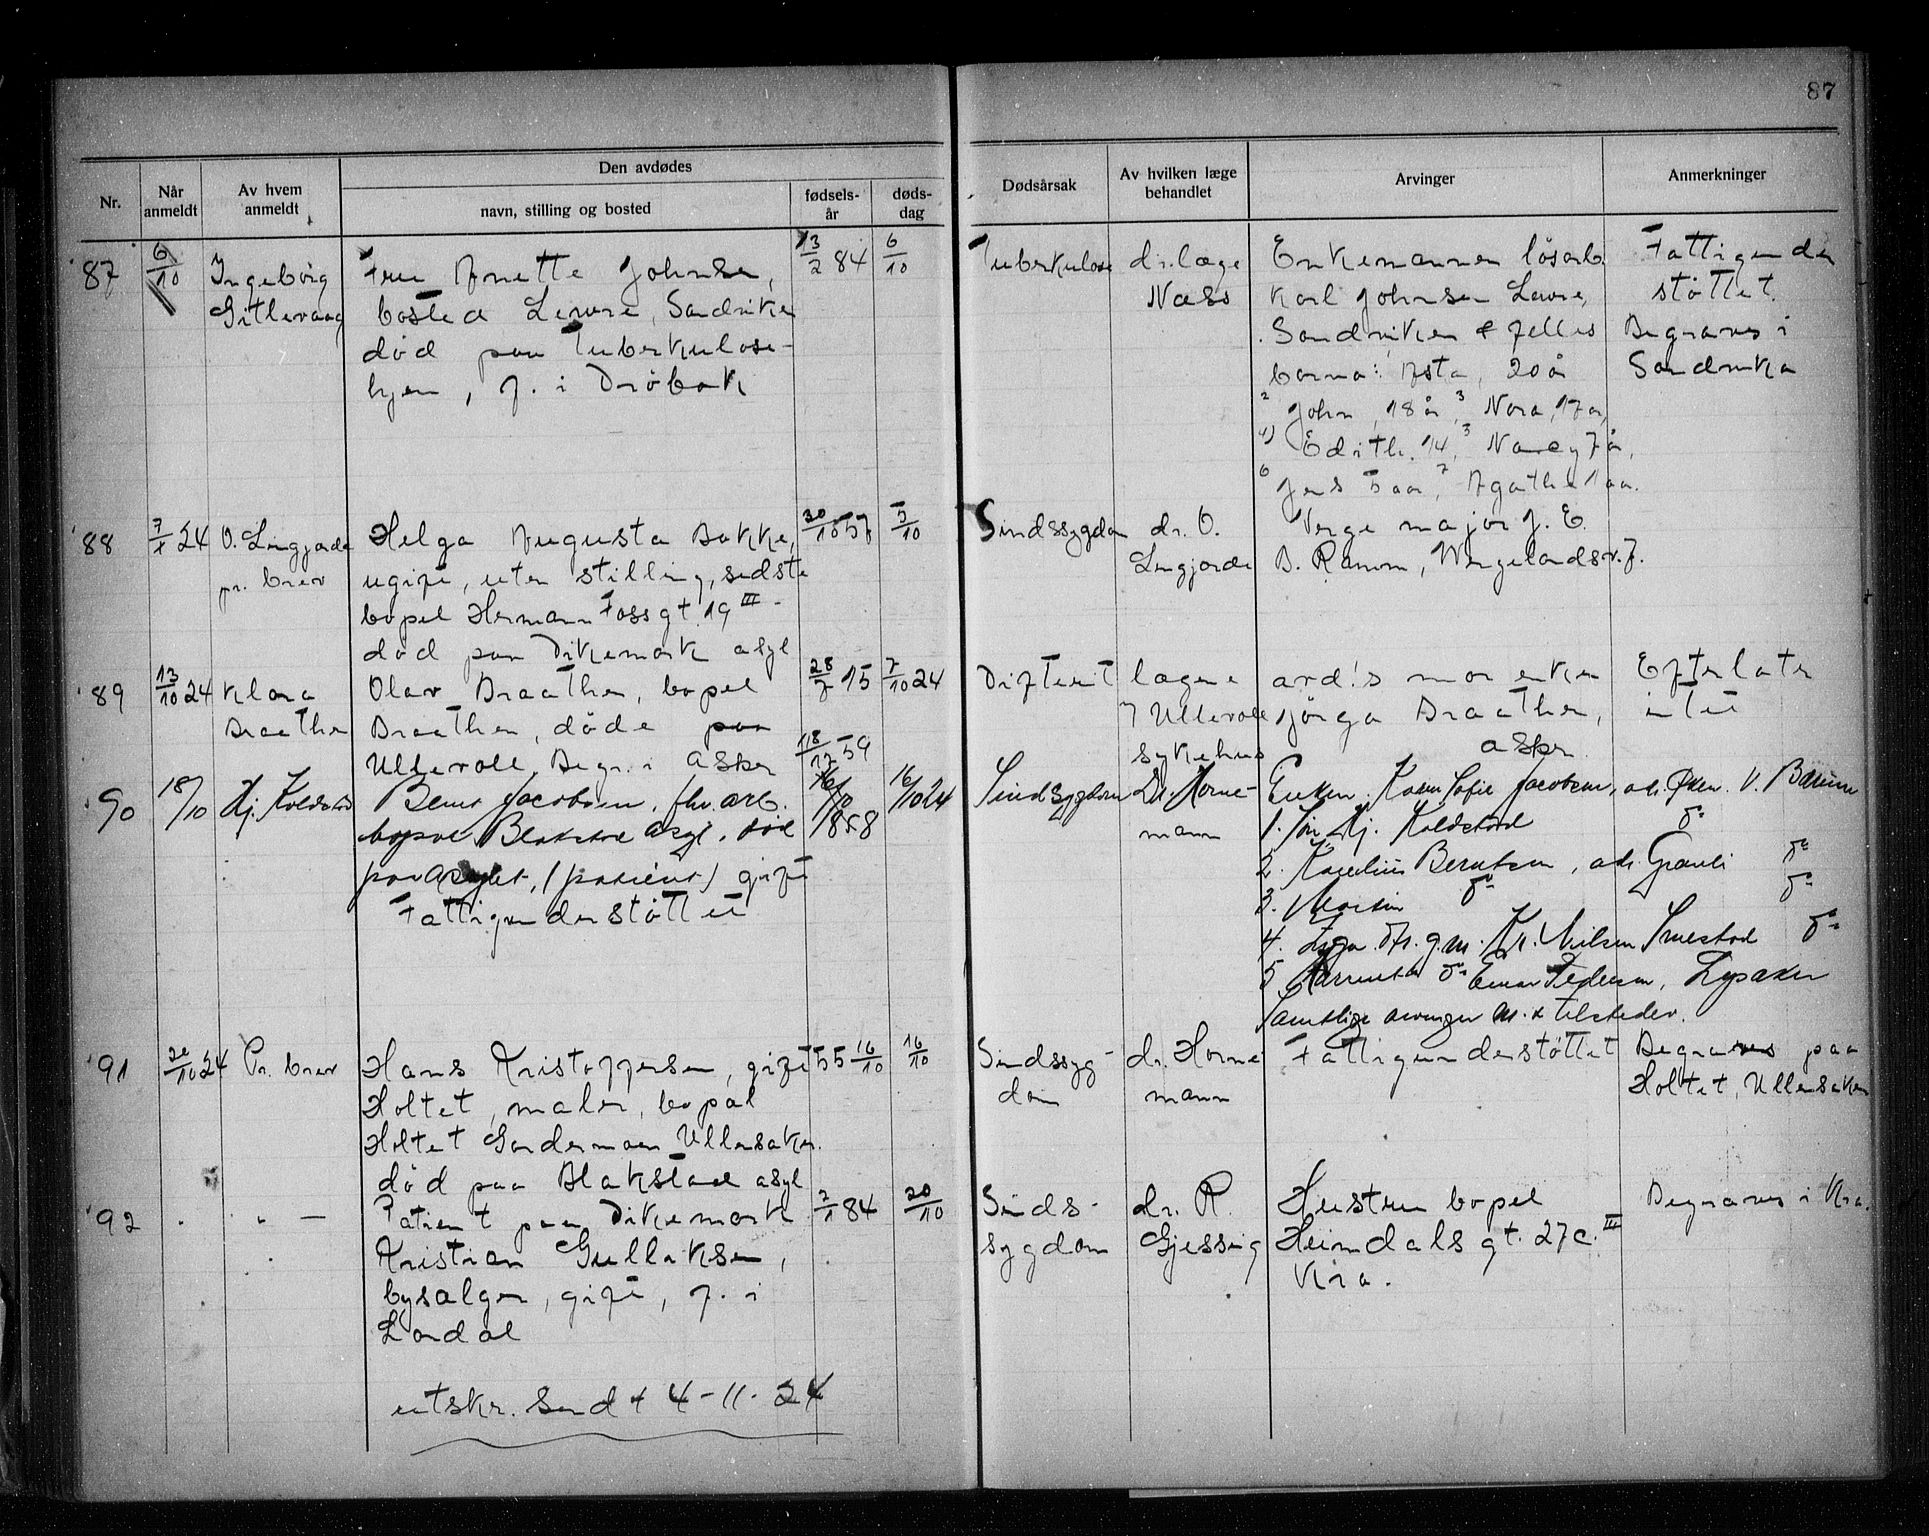 87
Den avdødes
Nr.
Når anmeldt
Av hvem anmeldt
navn, stilling og bosted
fødsels-år
døds-dag
Dødsårsak
Av hvilken læge behandlet
Arvinger
Anmerkninger
87
6/10
Ingebörg
Gitlevaag
Fru Anette Johnsen,
bosted Sandviken
död paa Tuberkulose-
hjem, f. i Dröbak
13/2 84
6/10
Tuberkulose
dr. læge
Næss
Enkemannen lösarb.
Karl Johnsen
Sandviken & felles
barna: Asta, 20 år
2 John, 18 år, 3 Nora, 17 år,
4) Edith 14, Nancy 7 år,
6 Jens 5 aar, 7 Agathe 1 aar.
Fattigunder
støttet.
Begraves i
Sandvika
88
24
O. Lingjærde
pr. brev
Helga Augusta Bakke,
ugift, uten stilling, sidste
bopel Herman Fossgt. 19 III
död paa Dikemark asyl
30/10 57
5/10
Sindssygdom
dr. O.
Lingjærde
Verge major J. E.
B. Ramm, Wergelandsv. 7.
89
13/10 24
Klara
Braathen
Olav Braathen, bopel
Braathen, döde paa
Ullevold, Begr. i Asker
28/7 15
7/10 24
Difterit
lægene
Ullevold
sykehus
avd!s mor enke
Jörga Braathen,
Asker
Efterlater
intet
90
18/10
Hj. Koldstad
Bernt Jacobsen, fhv. arb.
bopæl Blakstad Asyl. död
paa Asylet, (patient) gift
Fattigunderstöttet
18/12 59
1858
16/10 24
Sindssygdom
Dr. Horne-
mann
Enken. Karen Sofie Jacobsen, adr. V. Bærum
1. Hj. Koldstad do
2. Kornelius Berntsen, adr. Grauli do
3. Martin do do
4. Inga Fr. g.m. Kr. Nilsen Smestad do
5 do Einar Pedersen, Lysaker
Samtlige arvinger m. & tilsteder.
91
20/10 24
Pr. brev
Hans Kristoffersen, gift
Holtet, maler, bopæl
Holtet Gardermoen Ullensaker.
död paa Blakstad asyl
55 16/10
16/10
Sindssyg-
dom
dr. Horne
mann
Fattigunderstöttet
Begraves paa
Holtet, Ullensaker
92
" —
Patient paa Dikemark
Kristian Gulliksen,
bysælger, gift, f. i
Lardal
2/1 84
20/10
Sinds-
sygdom
dr. R.
Gjessing
Hustru bopel
Heimdalsgt. 27c. III
Kra.
Begraves i Kra.
utskr. sendt 4-11-24